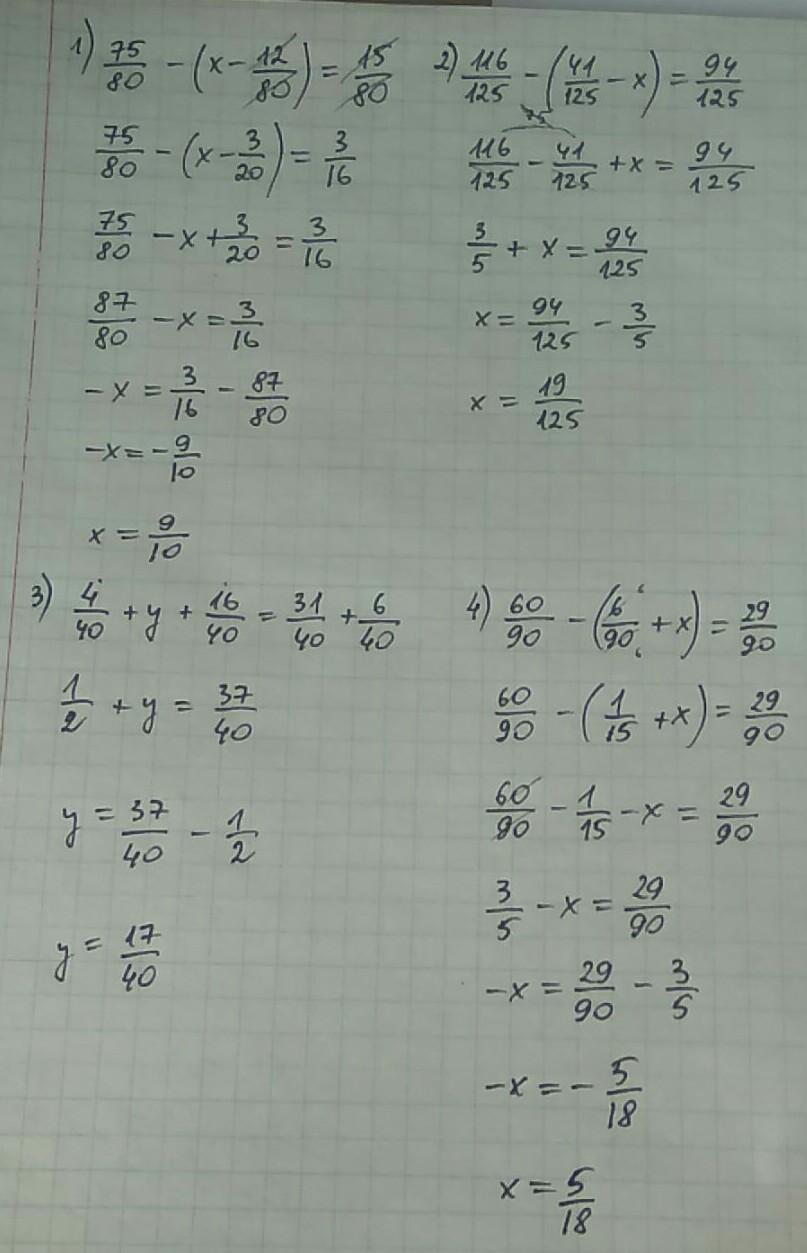 1) 75/80 - (x - 12/80) = 15/80
75/80 - (x - 3/20) = 3/16
75/80 - x + 3/20 = 3/16
87/80 - x = 3/16
-x = 3/16 - 87/80
-x = -9/10
x = 9/10
2) 116/125 - (41/125 - x) = 94/125
75
116/125 - 41/125 + x = 94/125
3/5 + x = 94/125
x = 94/125 - 3/5
x = 19/125
3) 4/40 + y + 16/40 = 31/40 + 6/40
1/2 + y = 37/40
y = 37/40 - 1/2
y = 17/40
4) 60/90 - (6/90 + x) = 29/90
60/90 - (1/15 + x) = 29/90
60/90 - 1/15 - x = 29/90
3/5 - x = 29/90
-x = 29/90 - 3/5
-x = - 5/18
x = 5/18